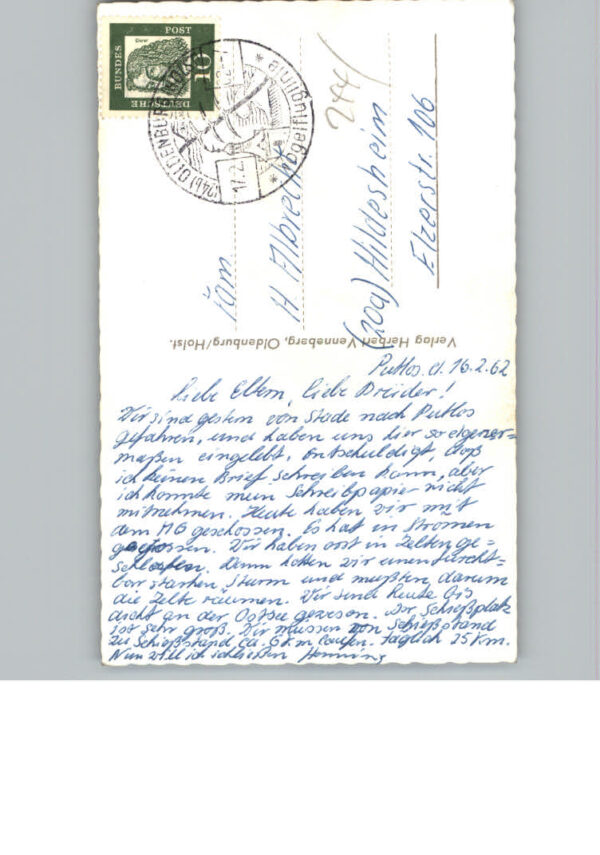 DEUTSCHE
BUNDES
POST
10
Dürer
(24b) OLDENBURG (HOLST)
* Vogelfluglinie *
17.2.
244/
Fam
H Albrecht
(20a) Hildesheim
Elzerstr. 106
Verlag Herbert Venneberg, Oldenburg/Holst.
Putlos. d. 16.2.62
Liebe Eltern, liebe Brüder!
Wir sind gestern von Stade nach Putlos
gefahren, und haben uns hier so eigener=
maßen eingelebt, entschuldigt, daß
ich keinen Brief schreiben kann, aber
ich konnte mein Schreibpapier nicht
mitnehmen. Heute haben wir mit
dem MG geschossen. Es hat in Stromen
gegossen. Wir haben erst in Zelten ge=
schlafen. Dann hatten wir einen furcht=
bar starken Sturm und mußten darum
die Zelte räumen. Wir sind heute bis
dicht an der Ostsee gewesen. Der Schießplatz
ist sehr groß. Wir müssen von Schießstand
zu Schießstand ca. 6 km laufen. täglich 25 Km.
Nun will ich schließen Henning